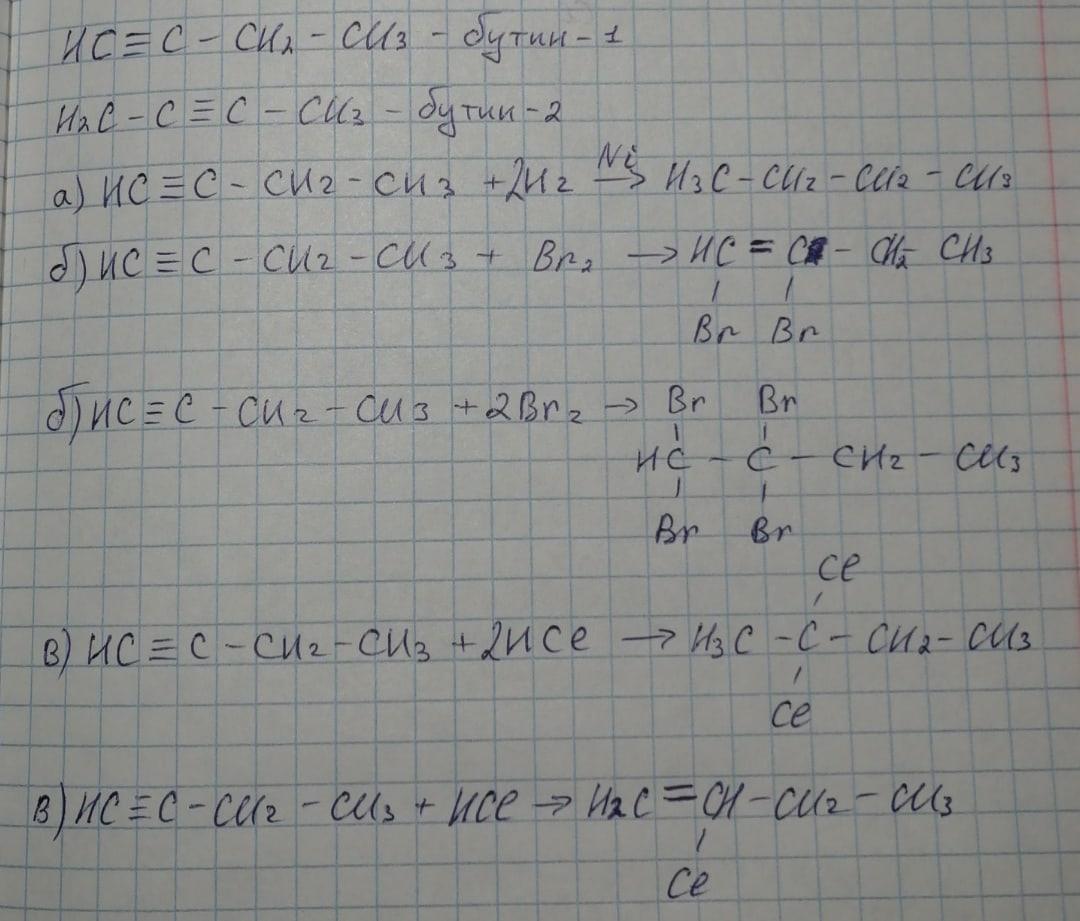 HC≡C - CH2 - CH3 - бутин-1
H2C - C≡C - CH3 - бутин-2
а) HC≡C - CH2 - CH3 + 2H2 →(Ni) H3C - CH2 - CH2 - CH3
б) HC≡C - CH2 - CH3 + Br2 → HC = C - CH2 CH3
Br Br
б) HC≡C - CH2 - CH3 + 2Br2 → Br Br
HC - C - CH2 - CH3
Br Br
Cl
в) HC≡C - CH2 - CH3 + 2HCl → H3C - C - CH2 - CH3
Cl
в) HC≡C - CH2 - CH3 + HCl → H2C = CH - CH2 - CH3
Cl